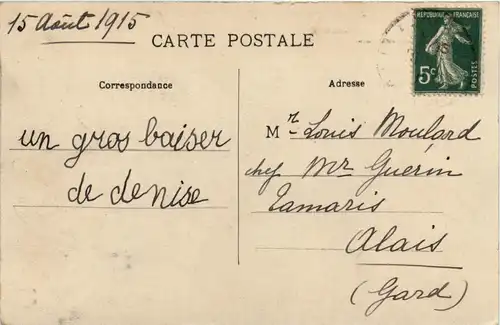 15 Août 1915
CARTE POSTALE
RÉPUBLIQUE FRANÇAISE
5c
POSTES
Correspondance
Adresse
un gros baiser
de denise
Mr Louis Moulard
chez Mr Guérin
Tamaris
Alais
(Gard)